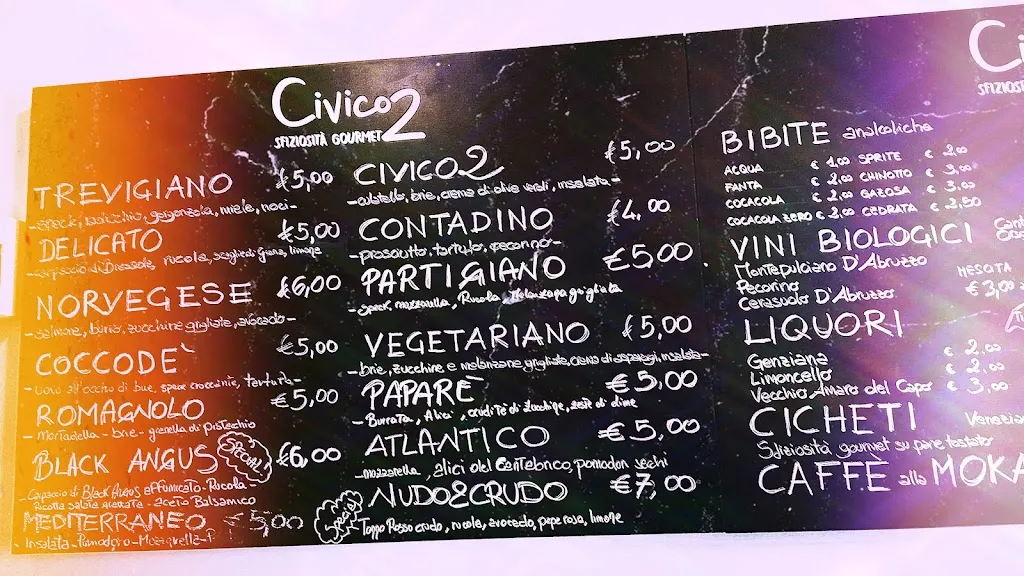 Civico2
SFIZIOSITÀ GOURMET
TREVIGIANO €5,00
- speck, radicchio, gorgonzola, miele, noci -
DELICATO €5,00
rucola, grana, limone
NORVEGESE €6,00
- salmone, burro, zucchine grigliate, avocado -
COCCODE' €5,00
- uovo all'occhio di bue, speck croccante, tartufo -
ROMAGNOLO €5,00
- Mortadella - brie - granella di pistacchio
BLACK ANGUS SPECIAL! €6,00
- Carpaccio di Black Angus affumicato - Rucola -
Ricotta salata grattata - aceto Balsamico
MEDITERRANEO €5,00
- Insalata - Pomodoro - Mozzarella -
CIVICO2 €5,00
- culatello, brie, crema di olive verdi, insalata -
CONTADINO €4,00
- prosciutto, tartufo, pecorino -
PARTIGIANO €5,00
- Speck, mozzarella, Rucola, Melanzana grigliata
VEGETARIANO €5,00
- brie, zucchine e melanzane grigliate, crema di asparagi, insalata -
PAPARE' €5,00
- Burrata, Alici, crudité di zucchine, zest di lime
ATLANTICO €5,00
- mozzarella, alici del Cantabrico, pomodori secchi
Special NUDO&CRUDO €7,00
Tonno Rosso crudo, rucola, avocado, pepe rosa, limone
BIBITE analcoliche
ACQUA € 1,00 SPRITE € 2,00
FANTA € 2,00 CHINOTTO € 3,00
COCACOLA € 2,00 GAZOSA € 3,00
COCACOLA ZERO € 2,00 CEDRATA € 2,50
VINI BIOLOGICI
Montepulciano D'Abruzzo
Pecorino MESCITA
Cerasuolo D'Abruzzo € 3,00
LIQUORI
Genziana € 2,00
Limoncello € 2,00
Vecchio Amaro del Capo € 3,00
CICHETI Venezia
Sfiziosità gourmet su pane tostato
CAFFE alla MOKA
Ci
SFIZIOSI